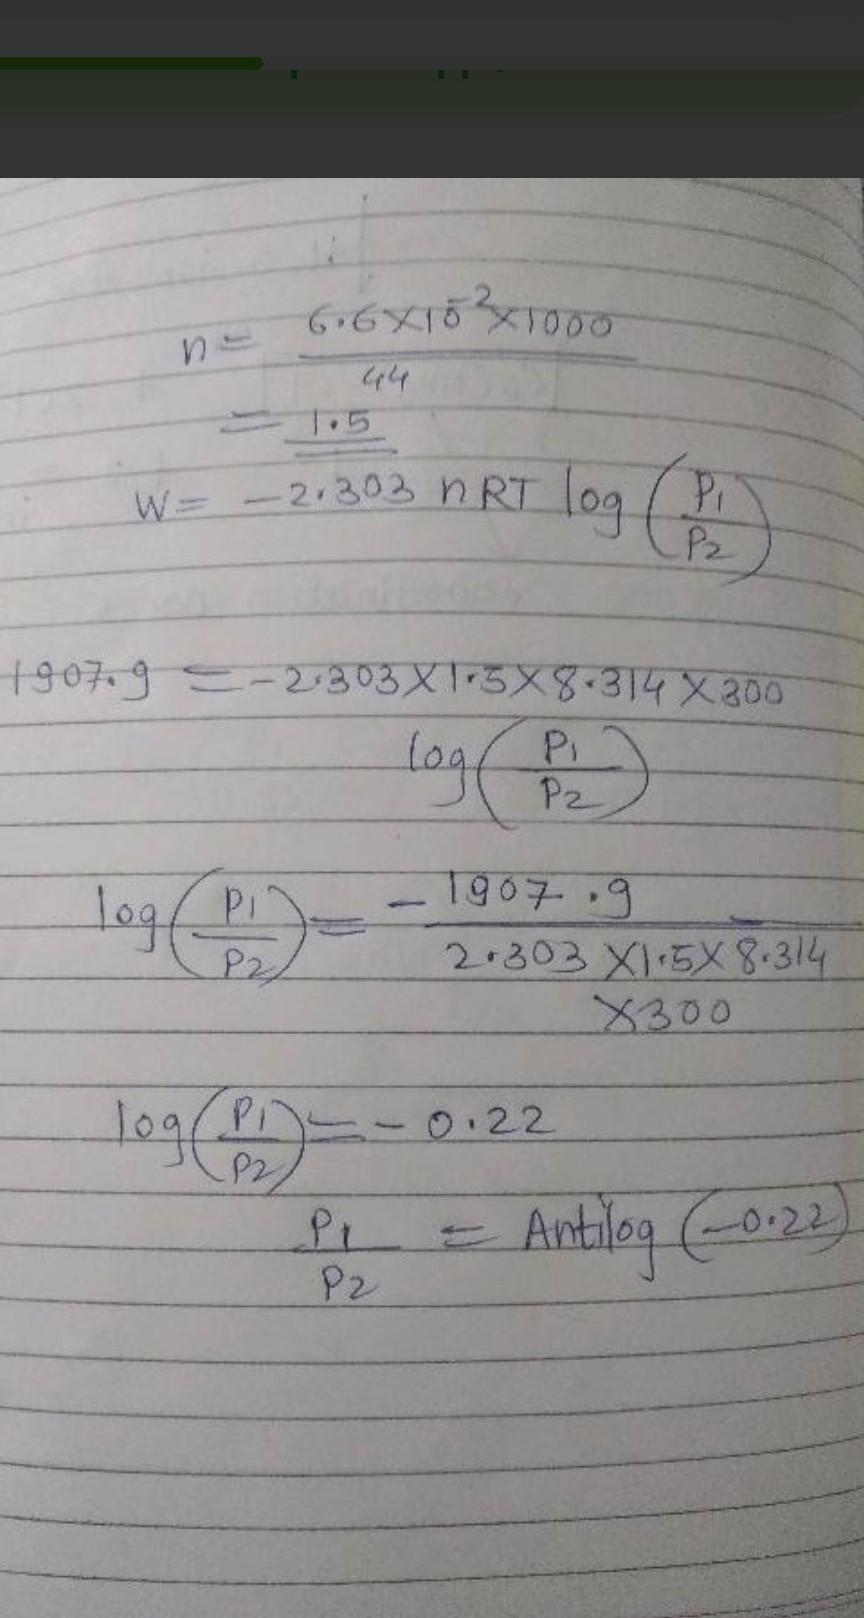 n= 6.6×10⁻²×1000
44
= 1.5
W= -2.303 nRT log (P1
P2)
1907.9 = -2.303×1.5×8.314×300
log(P1
P2)
log(P1
P2) = -1907.9
2.303×1.5×8.314
×300
log(P1
P2) = -0.22
P1
P2 = Antilog (-0.22)